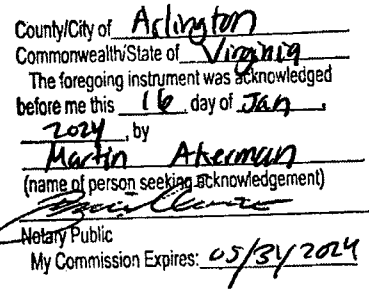 County/City of Arlington
Commonwealth/State of Virginia
The foregoing instrument was acknowledged
before me this 16 day of Jan,
2024, by
Martin Akerman
(name of person seeking acknowledgement)
Notary Public
My Commission Expires: 05/31/2024